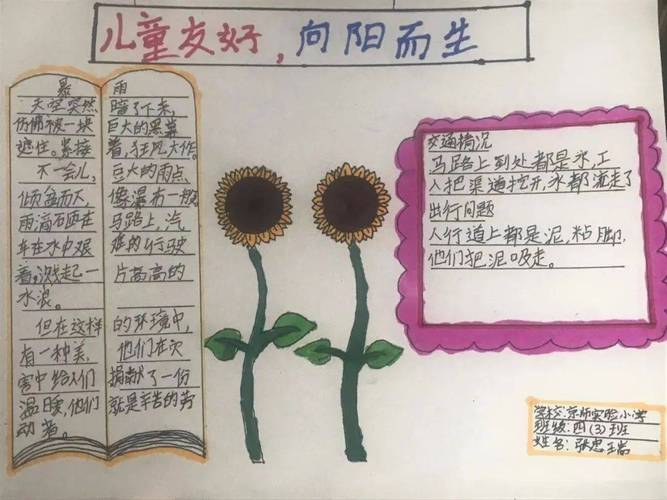 儿童友好,向阳而生
暴雨
天空突然暗了下来,
仿佛被一块巨大的黑幕
遮住。紧接着,狂风大作。
不一会儿,巨大的雨点
倾盆而下,像瀑布一般
雨滴洒在马路上,汽
车在水中艰难的行驶
着,溅起一片高高的
水浪。
但在这样的环境中,
有一种美,他们在灾
害中给人们捐献了一份
温暖,他们就是辛苦的劳
动者。
交通情况
马路上到处都是水,工
人把渠道挖开,水都流走了
出行问题
人行道上都是泥,粘脚,
他们把泥吸走。
学校:京师实验小学
班级:四(3)班
姓名:张忠